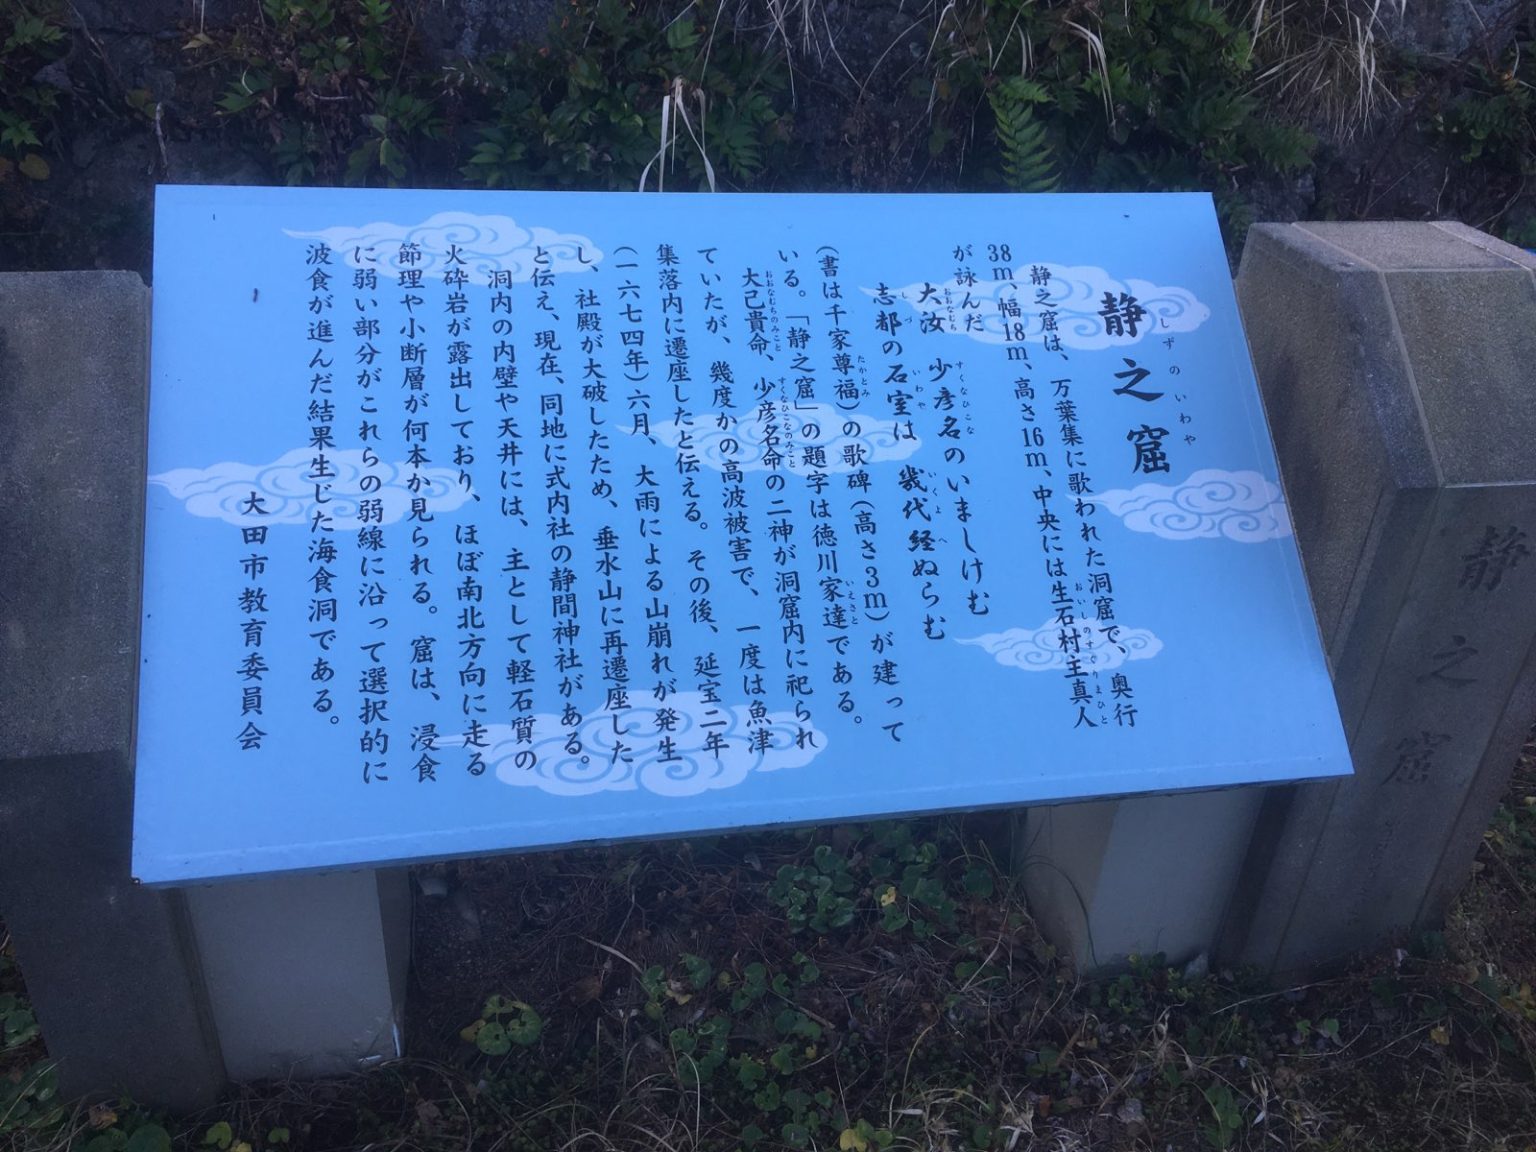 静之窟
しずのいわや
静之窟は、万葉集に歌われた洞窟で、奥行
38m、幅18m、高さ16m、中央には生石村主真人
おいしのすぐりまひと
が詠んだ
大汝 少彦名のいましけむ
おおなむち すくなひこな
志都の石室は 幾代経ぬらむ
しづ いわや いくよ へ
(書は千家尊福)の歌碑(高さ3m)が建って
たかとみ
いる。「静之窟」の題字は徳川家達である。
いえさと
大己貴命、少彦名命の二神が洞窟内に祀られ
おおなむちのみこと すくなひこなのみこと
ていたが、幾度かの高波被害で、一度は魚津
集落内に遷座したと伝える。その後、延宝二年
(一六七四年)六月、大雨による山崩れが発生
し、社殿が大破したため、垂水山に再遷座した
と伝え、現在、同地に式内社の静間神社がある。
洞内の内壁や天井には、主として軽石質の
火砕岩が露出しており、ほぼ南北方向に走る
節理や小断層が何本か見られる。窟は、浸食
に弱い部分がこれらの弱線に沿って選択的に
波食が進んだ結果生じた海食洞である。
大田市教育委員会
静之窟